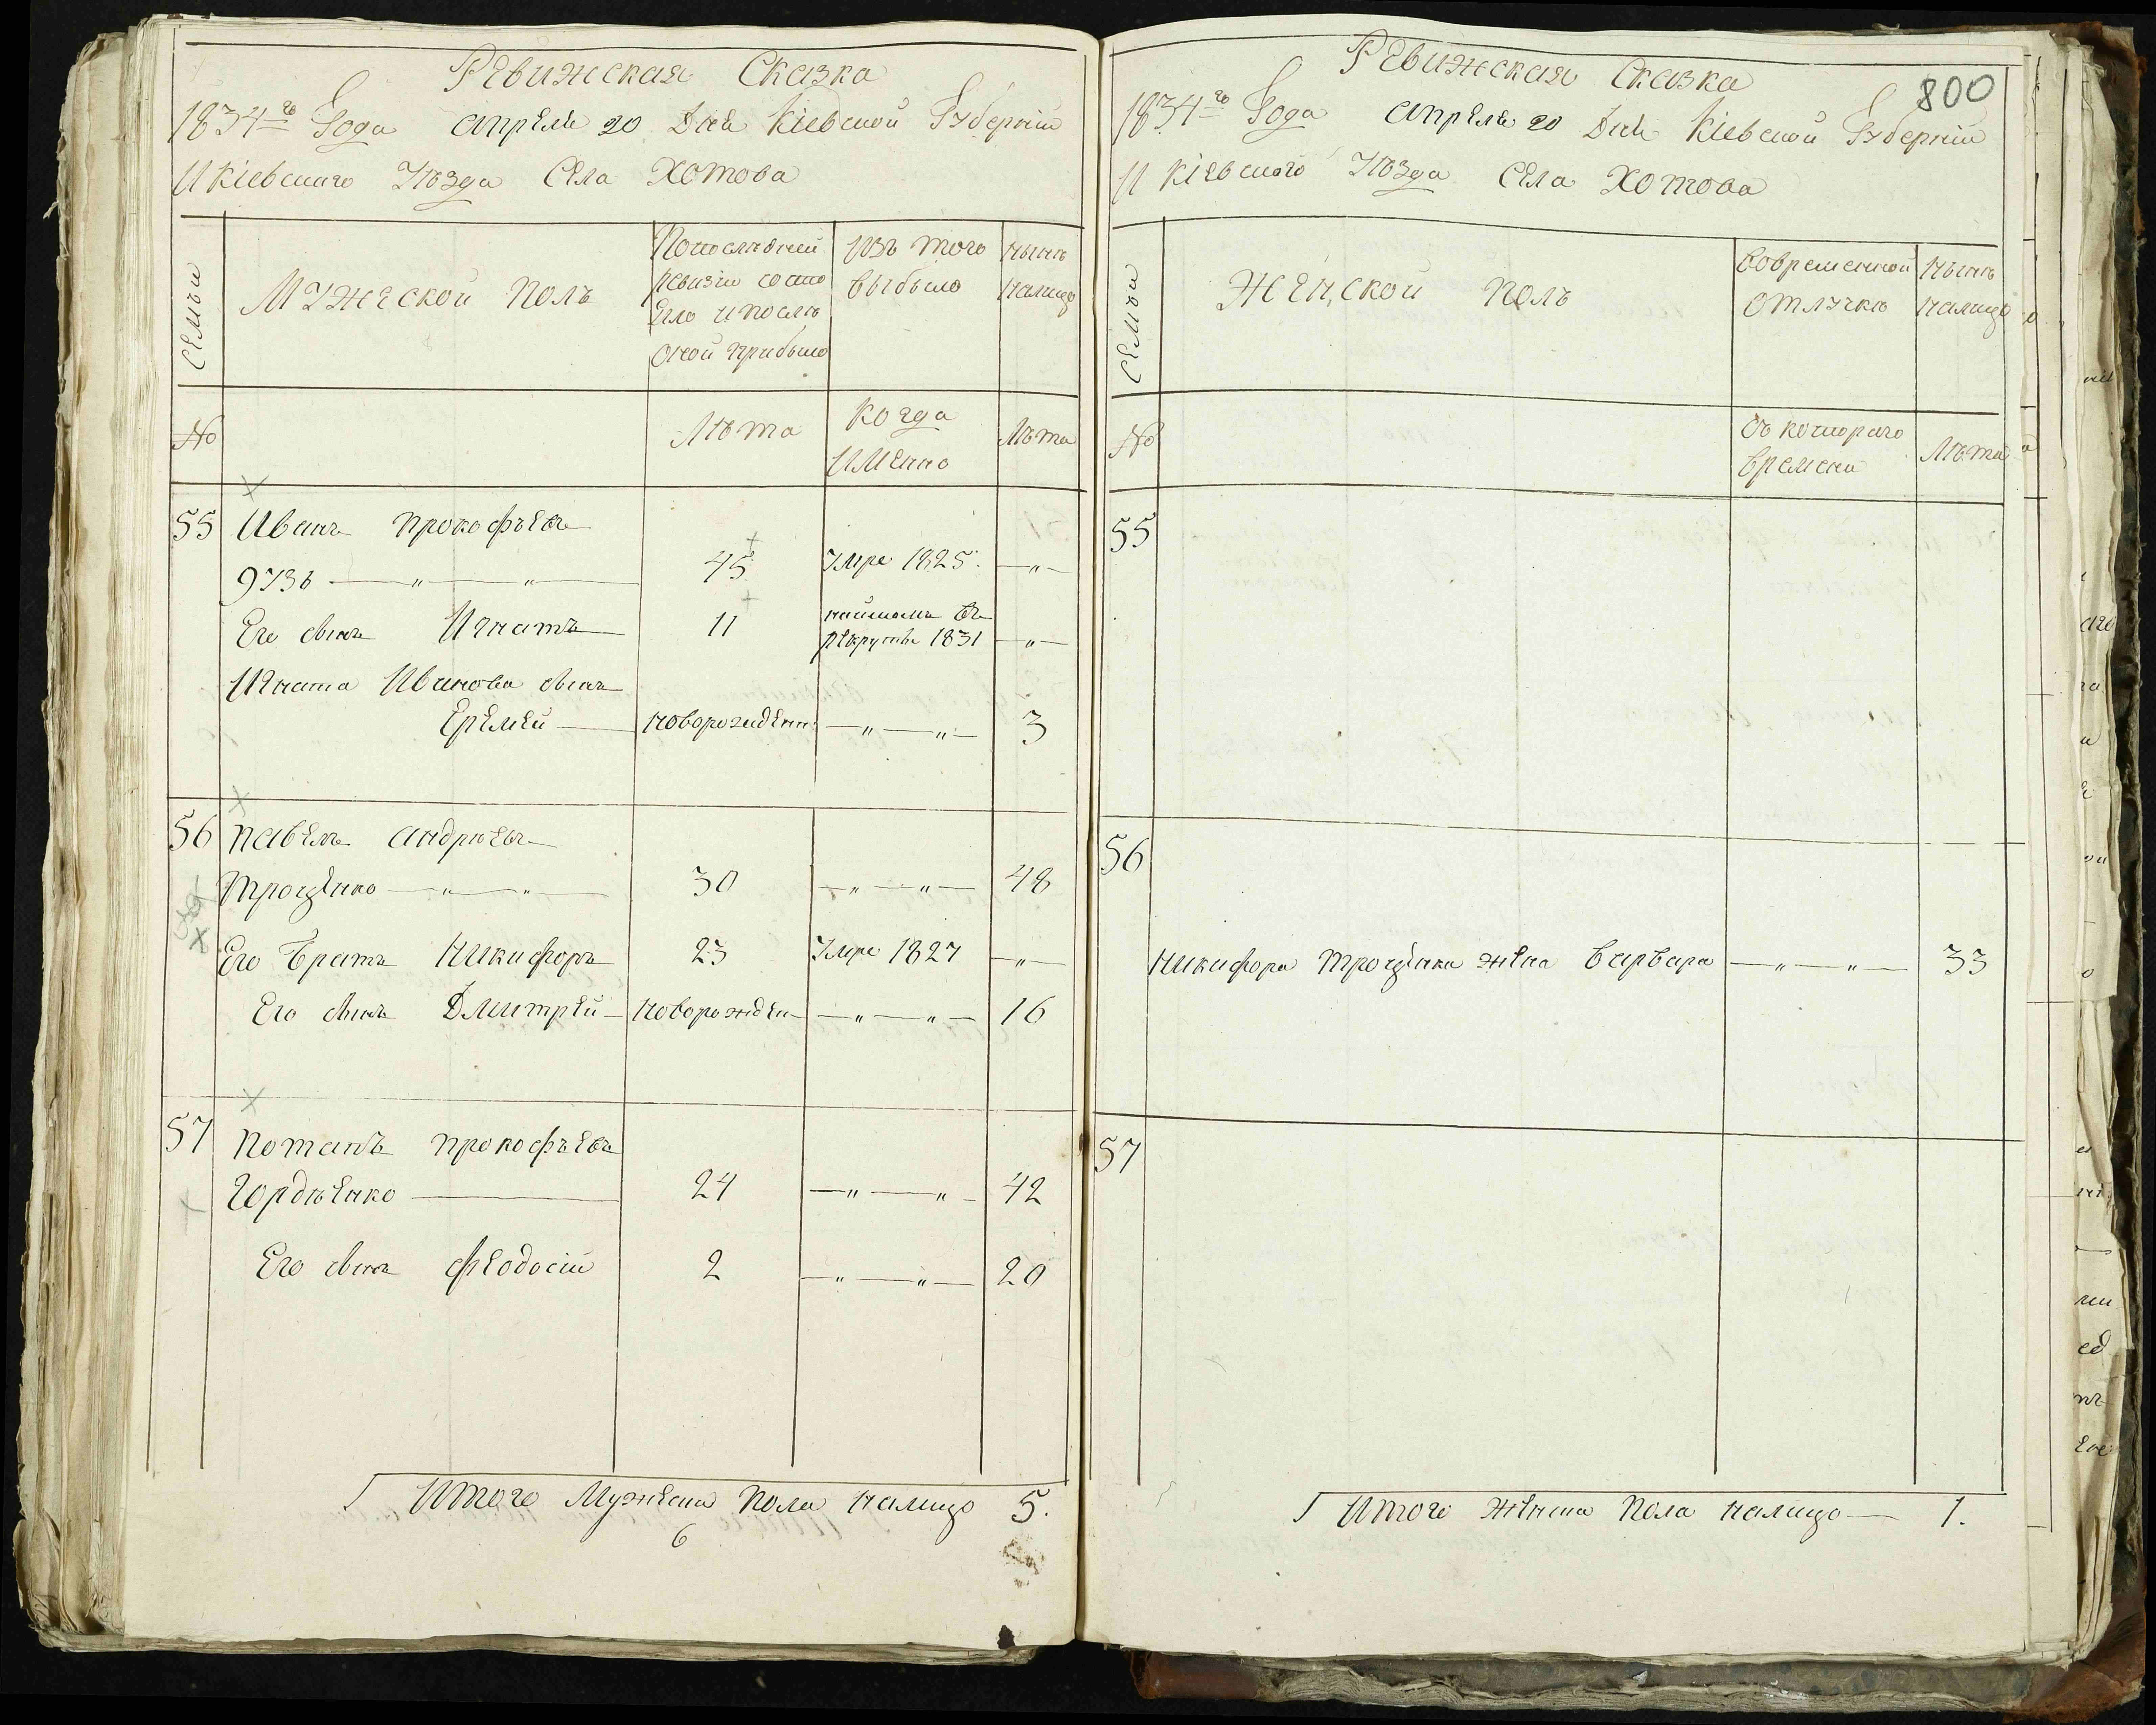 Ревижская Сказка
1834го Года апреля 20 Дня Кіевской Губерніи
И Кіевскаго Уѣзда Села Хотова
Семьи
Мужеской полъ
Попослѣдней
ревизіи состо
яло и послѣ
оной прибыло
Изъ того
выбыло
нынѣ
налицо
№
Лѣта
Когда
именно
Лѣта
55 Иванъ Прокофьевъ
45 Умре 1825. —"—
Его сынъ Игнатъ 11 наймомъ въ
рекруты 1831 —"—
Игната Иванова сынъ
Еремей — новорожденн: —"—"— 3
56 Павелъ андрѣевъ
Троценко —"—"— 30 —"—"— 48
Его Братъ Никифоръ 23 Умре 1827 —"—
Его сынъ Дмитрей — новорожден —"—"— 16
57 Потапъ прокофьевъ
Гордѣенко — 24 —"—"— 42
Его сынъ Феодосій 2 —"—"— 20
Итого Мужеска пола налицо 5.
6
800
Ревижская Сказка
1834го Года апреля 20 Дня Кіевской Губерніи
И Кіевского Уѣзда Села Хотова
Семьи
Женской полъ
Вовременной
отлучкѣ
нынѣ
налицо
№
Съ котораго
времени
Лѣта
55
56
Никифора Троценка жена Варвара —"—"— 33
57
Итого женска пола налицо — 1.